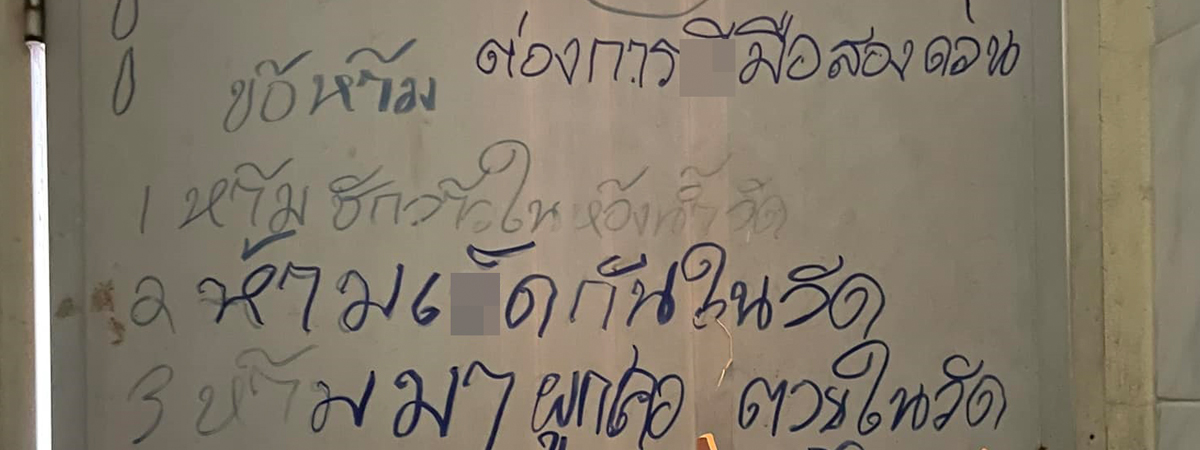 ต้องการ มือสองด่วน
ข้อห้าม
1 ห้ามชักว่าวในห้องน้ำวัด
2 ห้าม กันในวัด
3 ห้ามมาผูกคอ ตายในวัด